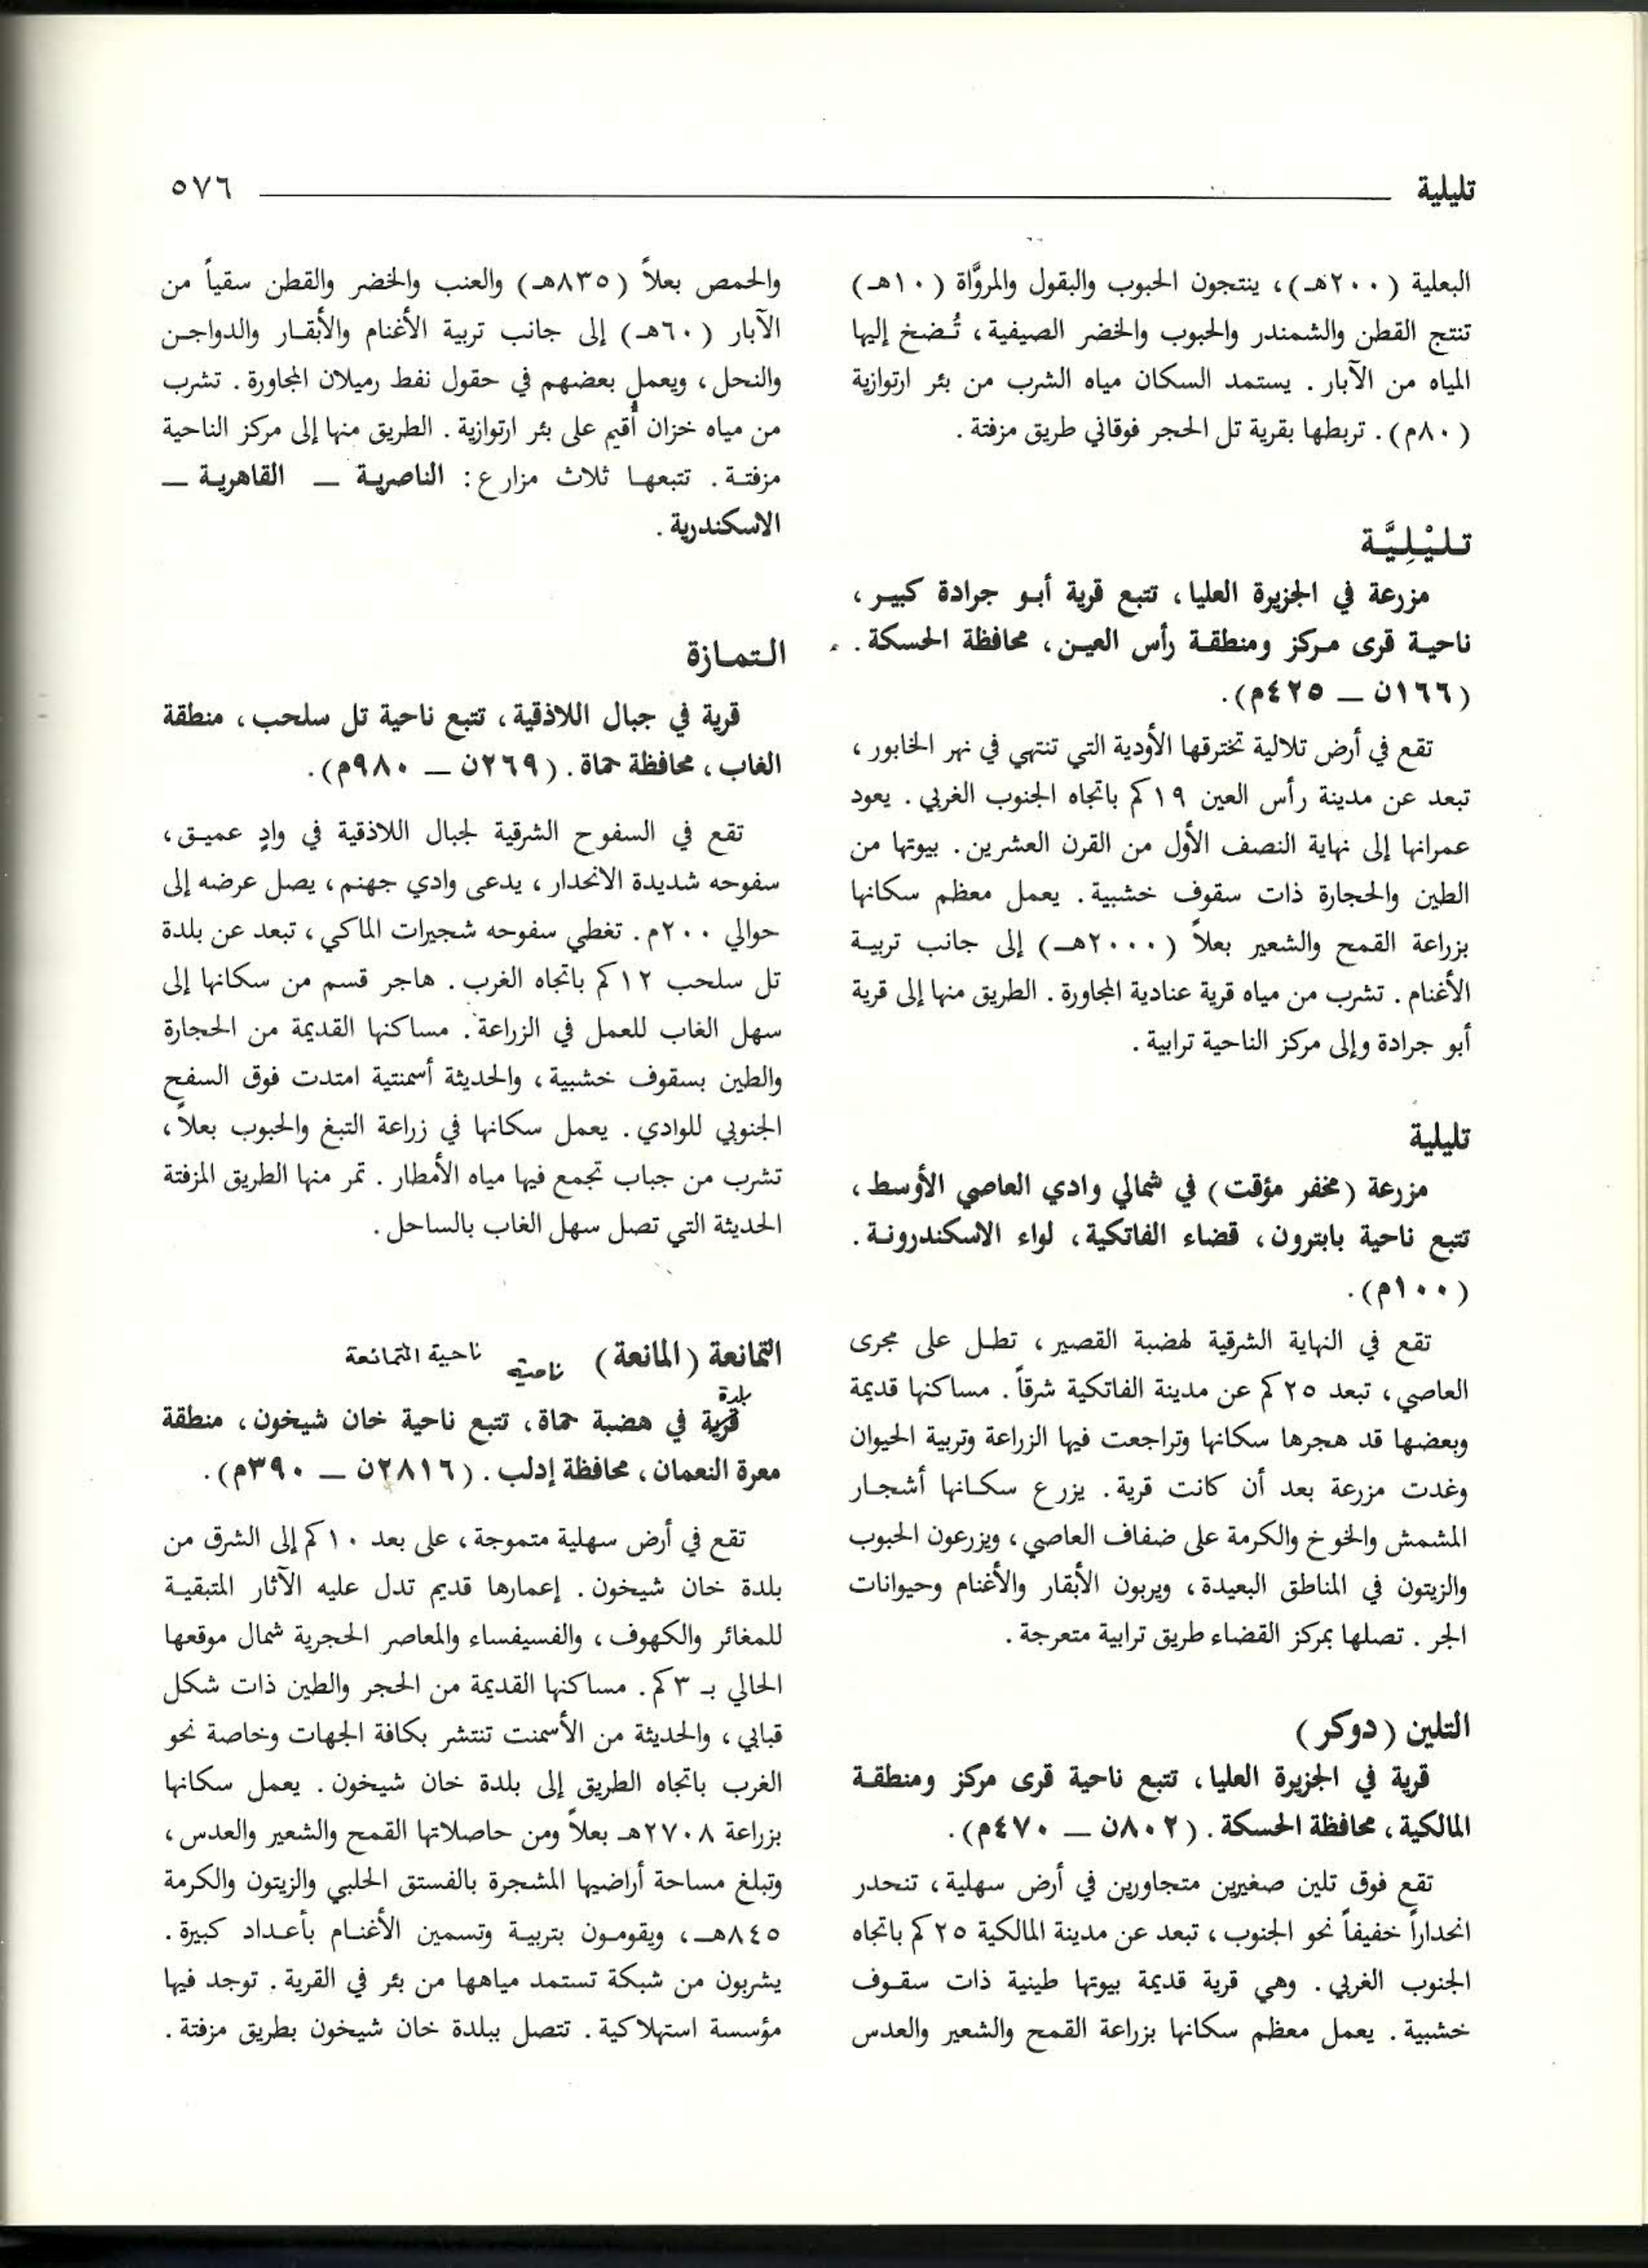 تليلية
٥٧٦
البعلية (٢٠٠هـ)، ينتجون الحبوب والبقول والمروَّاة (١٠هـ)
تنتج القطن والشمندر والحبوب والخضر الصيفية، تُضخ إليها
المياه من الآبار. يستمد السكان مياه الشرب من بئر ارتوازية
(٨٠م). تربطها بقرية تل الحجر فوقاني طريق مزفتة.
تليْلِيَّة
مزرعة في الجزيرة العليا، تتبع قرية أبو جرادة كبير،
ناحية قرى مركز ومنطقة رأس العين، محافظة الحسكة.
(١٦٦ن — ٤٢٥م).
تقع في أرض تلالية تخترقها الأودية التي تنتهي في نهر الخابور،
تبعد عن مدينة رأس العين ١٩كم باتجاه الجنوب الغربي. يعود
عمرانها إلى نهاية النصف الأول من القرن العشرين. بيوتها من
الطين والحجارة ذات سقوف خشبية. يعمل معظم سكانها
بزراعة القمح والشعير بعلاً (٢٠٠٠هـ) إلى جانب تربية
الأغنام. تشرب من مياه قرية عنادية المجاورة. الطريق منها إلى قرية
أبو جرادة وإلى مركز الناحية ترابية.
تليلية
مزرعة (مخفر مؤقت) في شمالي وادي العاصي الأوسط،
تتبع ناحية بابترون، قضاء الفاتكية، لواء الاسكندرونة.
(١٠٠م).
تقع في النهاية الشرقية لهضبة القصير، تطل على مجرى
العاصي، تبعد ٢٥كم عن مدينة الفاتكية شرقاً. مساكنها قديمة
وبعضها قد هجرها سكانها وتراجعت فيها الزراعة وتربية الحيوان
وغدت مزرعة بعد أن كانت قرية. يزرع سكانها أشجار
المشمش والخوخ والكرمة على ضفاف العاصي، ويزرعون الحبوب
والزيتون في المناطق البعيدة، ويربون الأبقار والأغنام وحيوانات
الجر. تصلها بمركز القضاء طريق ترابية متعرجة.
التلين (دوكر)
قرية في الجزيرة العليا، تتبع ناحية قرى مركز ومنطقة
المالكية، محافظة الحسكة. (٨٠٢ن — ٤٧٠م).
تقع فوق تلين صغيرين متجاورين في أرض سهلية، تنحدر
انحداراً خفيفاً نحو الجنوب، تبعد عن مدينة المالكية ٢٥كم باتجاه
الجنوب الغربي. وهي قرية قديمة بيوتها طينية ذات سقوف
خشبية. يعمل معظم سكانها بزراعة القمح والشعير والعدس
والحمص بعلاً (٨٣٥هـ) والعنب والخضر والقطن سقياً من
الآبار (٦٠هـ) إلى جانب تربية الأغنام والأبقار والدواجن
والنحل، ويعمل بعضهم في حقول نفط رميلان المجاورة. تشرب
من مياه خزان أُقيم على بئر ارتوازية. الطريق منها إلى مركز الناحية
مزفتة. تتبعها ثلاث مزارع: الناصرية — القاهرية —
الاسكندرية.
التمازة
قرية في جبال اللاذقية، تتبع ناحية تل سلحب، منطقة
الغاب، محافظة حماة. (٢٦٩ن — ٩٨٠م).
تقع في السفوح الشرقية لجبال اللاذقية في وادٍ عميق،
سفوحه شديدة الانحدار، يدعى وادي جهنم، يصل عرضه إلى
حوالي ٢٠٠م. تغطي سفوحه شجيرات الماكي، تبعد عن بلدة
تل سلحب ١٢كم باتجاه الغرب. هاجر قسم من سكانها إلى
سهل الغاب للعمل في الزراعة. مساكنها القديمة من الحجارة
والطين بسقوف خشبية، والحديثة أسمنتية امتدت فوق السفح
الجنوبي للوادي. يعمل سكانها في زراعة التبغ والحبوب بعلاً،
تشرب من جباب تجمع فيها مياه الأمطار. تمر منها الطريق المزفتة
الحديثة التي تصل سهل الغاب بالساحل.
التمانعة (المانعة) ناحية ناحية التمانعة
بلدة
قرية في هضبة حماة، تتبع ناحية خان شيخون، منطقة
معرة النعمان، محافظة إدلب. (٢٨١٦ن — ٣٩٠م).
تقع في أرض سهلية متموجة، على بعد ١٠كم إلى الشرق من
بلدة خان شيخون. إعمارها قديم تدل عليه الآثار المتبقية
للمغائر والكهوف، والفسيفساء والمعاصر الحجرية شمال موقعها
الحالي بـ ٣كم. مساكنها القديمة من الحجر والطين ذات شكل
قبابي، والحديثة من الأسمنت تنتشر بكافة الجهات وخاصة نحو
الغرب باتجاه الطريق إلى بلدة خان شيخون. يعمل سكانها
بزراعة ٢٧٠٨هـ بعلاً ومن حاصلاتها القمح والشعير والعدس،
وتبلغ مساحة أراضيها المشجرة بالفستق الحلبي والزيتون والكرمة
٨٤٥هـ، ويقومون بتربية وتسمين الأغنام بأعداد كبيرة.
يشربون من شبكة تستمد مياهها من بئر في القرية. توجد فيها
مؤسسة استهلاكية. تتصل ببلدة خان شيخون بطريق مزفتة.